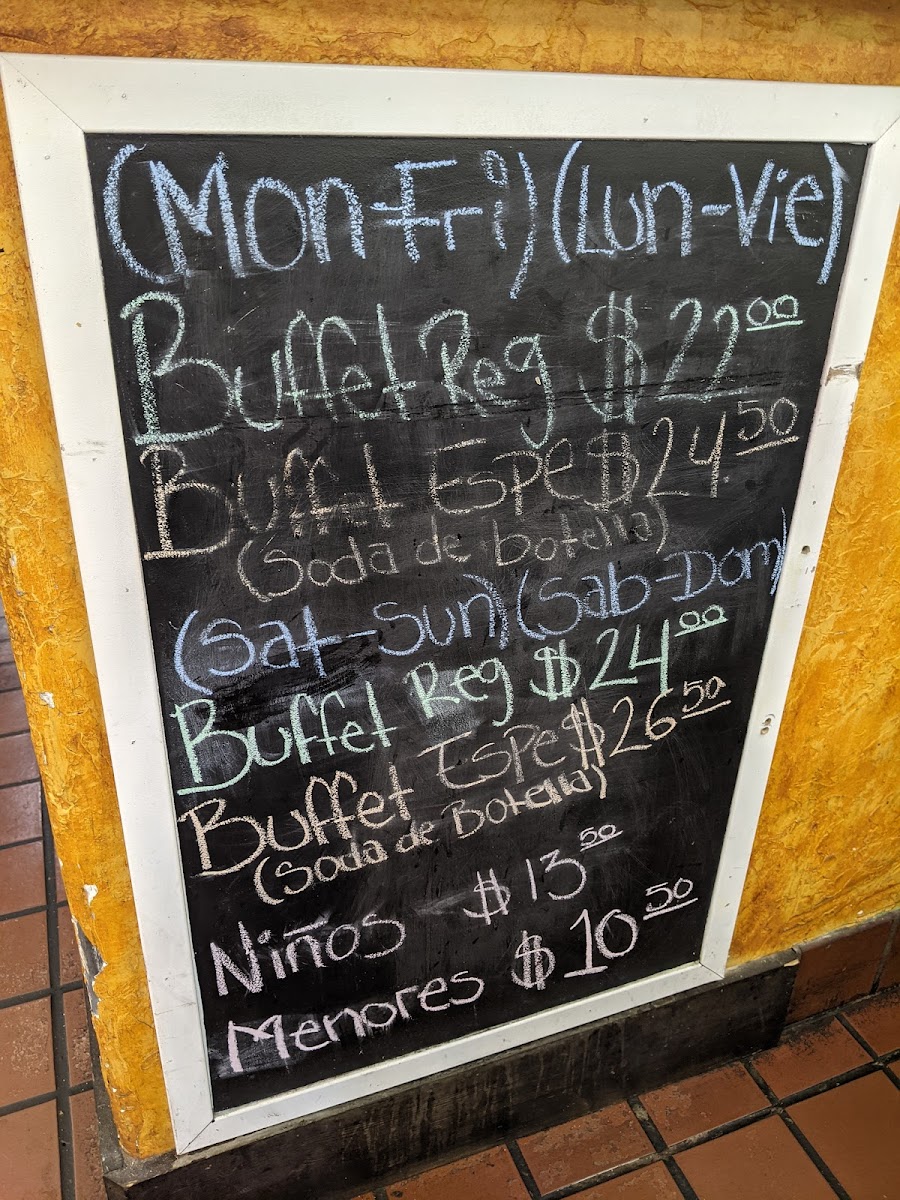 (Mon-Fri) (Lun-Vie)
Buffet Reg $22.00
Buffet Espe $24.50
(Soda de botella)
(Sat-Sun) (Sab-Dom)
Buffet Reg $24.00
Buffet Espe $26.50
(Soda de Botella)
Niños $13.50
Menores $10.50